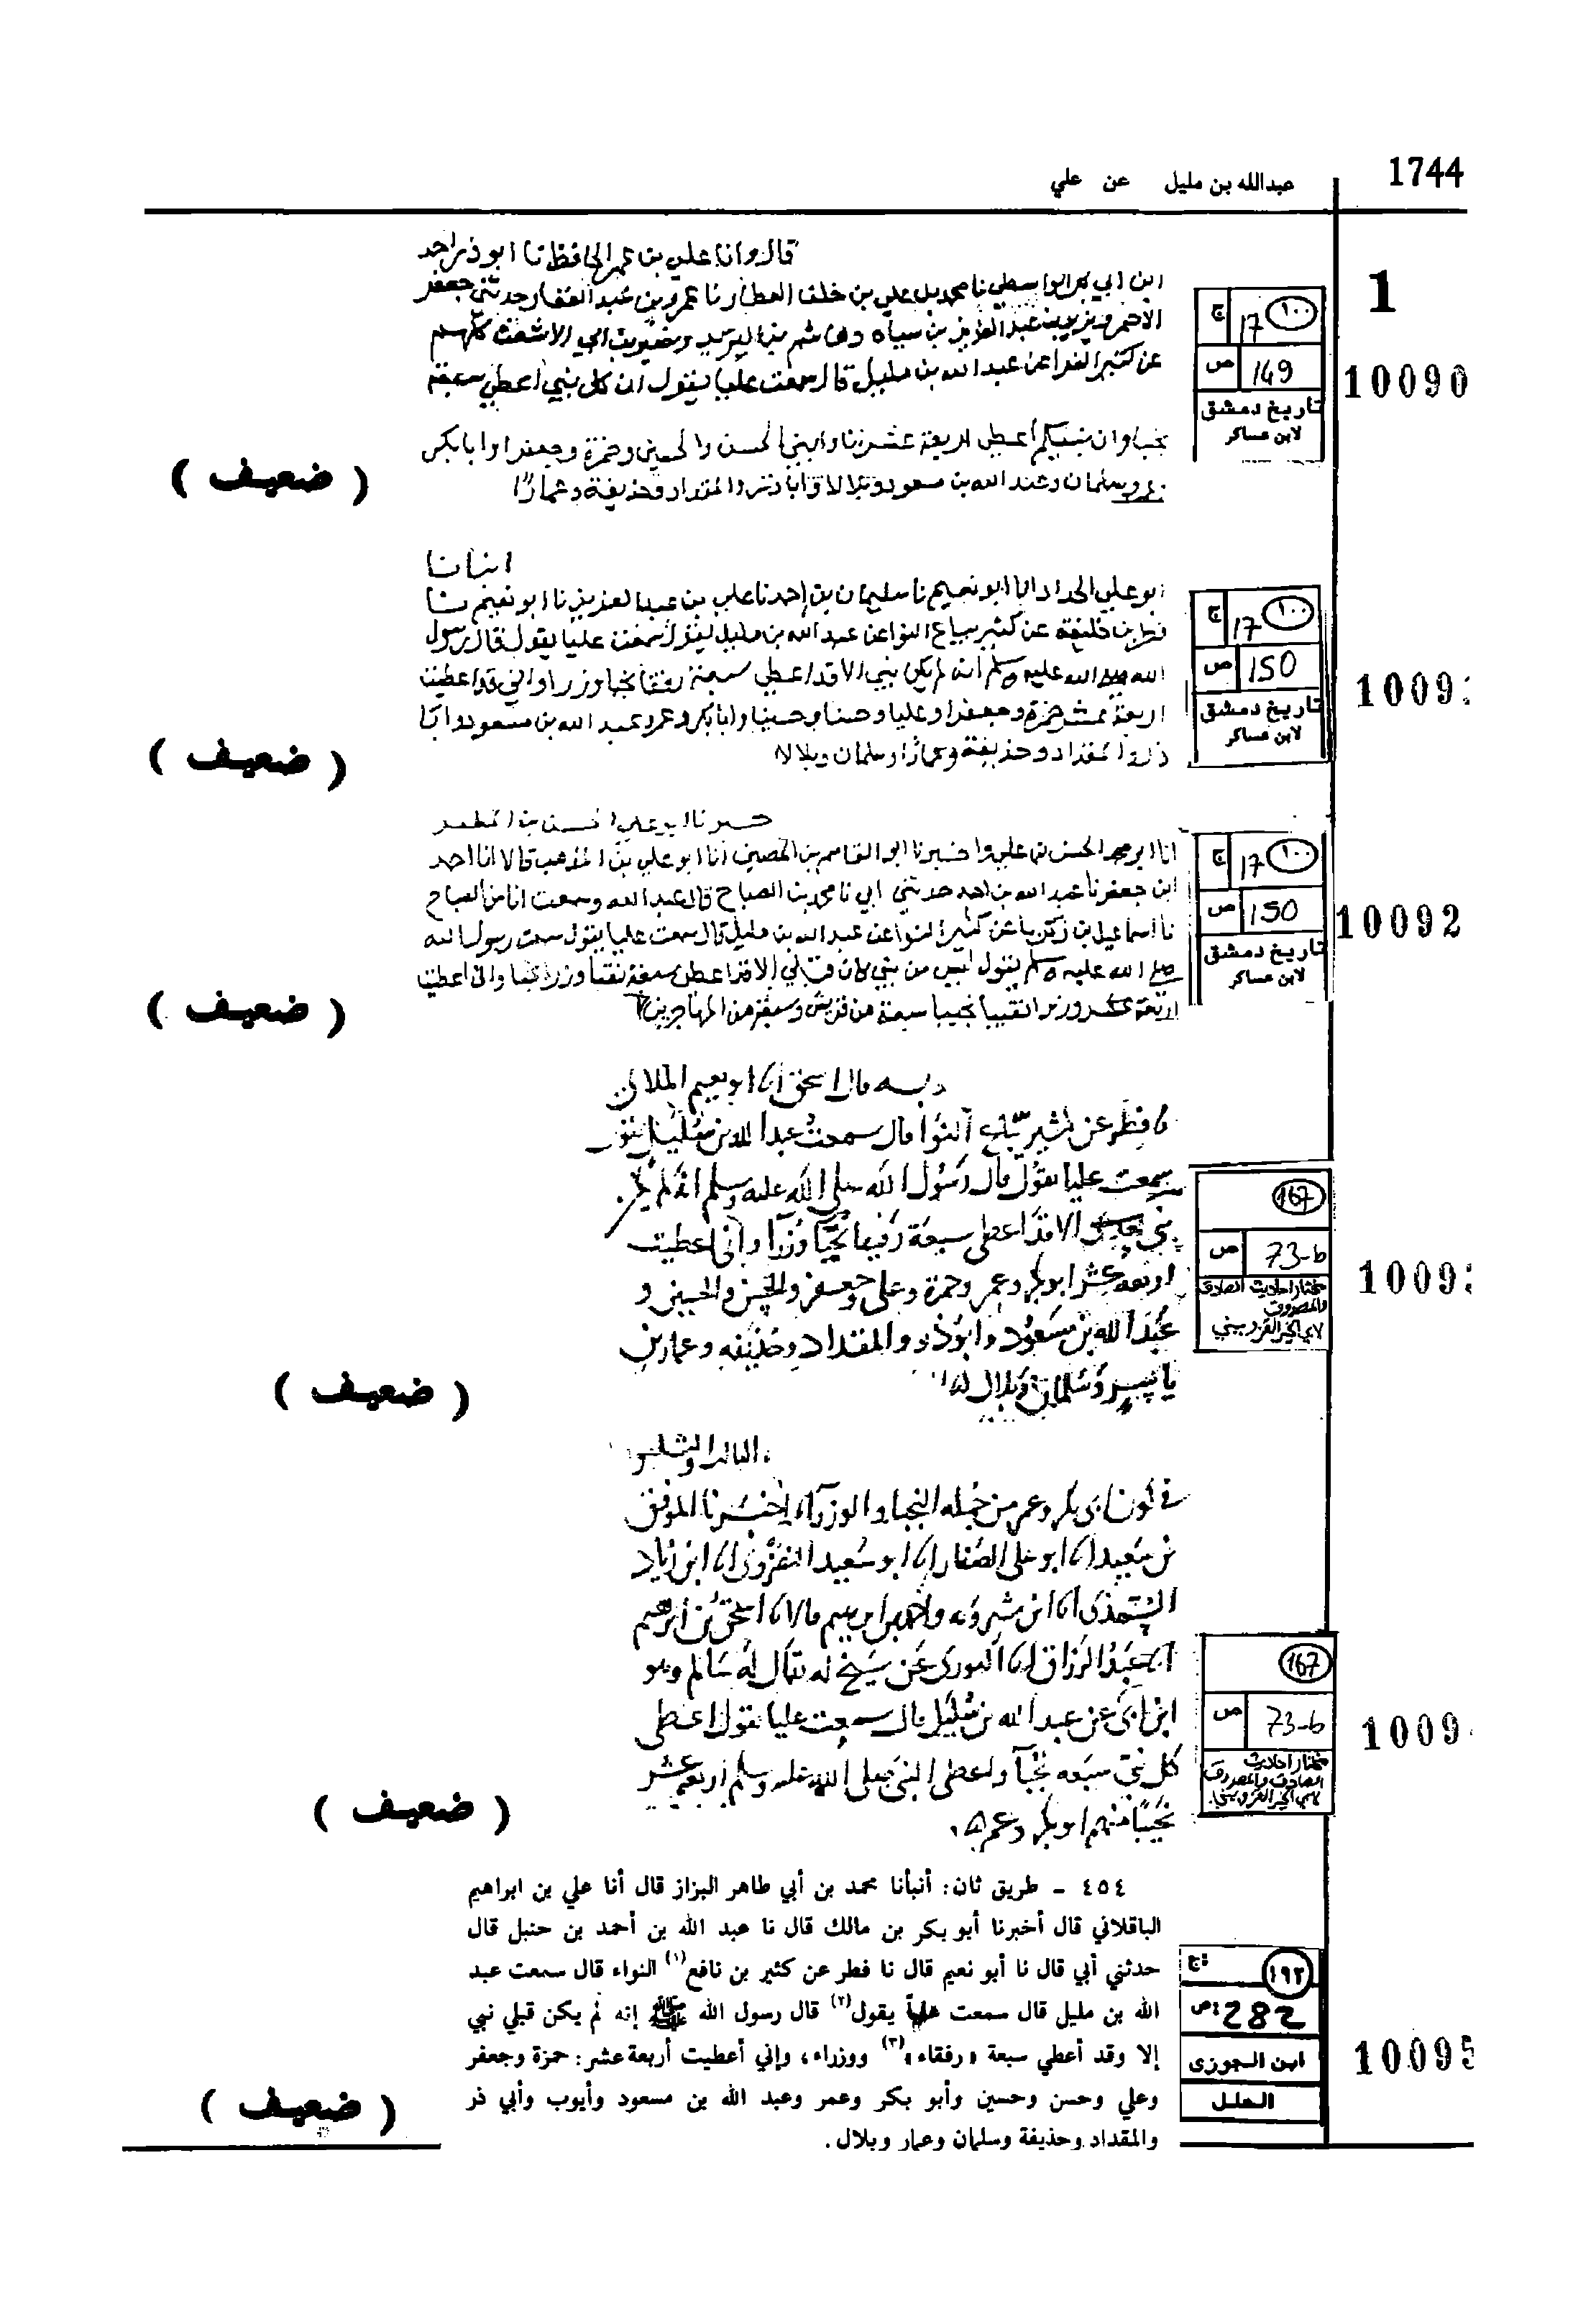 1744
عبدالله بن مليل عن علي
1
قال وانا علي بن عمر الحافظ نا ابو ذر احمد
ابن ابي بكر الواسطي نا محمد بن علي بن خلف العطار نا عمرو بن عبد الغفار حدثني جعفر
الاحمر ويزيد بن عبد العزيز بن سياه وهاشم بن البريد كلهم
عن كثير النوا عن عبد الله بن مليل قال سمعت عليا يقول ان كل نبي اعطي سبعة
نجبا وان نبيكم اعطي اربعة عشر نا وابني الحسن والحسين وحمزة وجعفرا وابا بكر
وعمر وسلمان وعبد الله بن مسعود وبلالا وابا ذر والمقداد وحذيفة وعمارا
١٠٠
ج 17
ص 149
تاريخ دمشق
لابن عساكر
10090
( ضعيف )
انبانا
ابو علي الحداد انا ابو نعيم نا سليمان بن احمد نا علي بن عبد العزيز نا ابو نعيم نا
فطر بن خليفة عن كثير بياع النوا عن عبد الله بن مليل يقول سمعت عليا يقول قال رسول
الله صلى الله عليه وسلم انه لم يكن نبي الا قد اعطي سبعة رفقا نجبا وزرا واني قد اعطيت
اربعة عشر حمزة وجعفرا وعليا وحسنا وحسينا وابا بكر وعمر وعبد الله بن مسعود وابا
ذر والمقداد وحذيفة وعمارا وسلمان وبلالا
١٠٠
ج 17
ص 150
تاريخ دمشق
لابن عساكر
1009
( ضعيف )
ابو علي الحسن بن المظفر
انا ابو محمد الحسن بن علي واخبرنا ابو القاسم بن الحصين انا ابو علي بن المذهب قالا انا احمد
ابن جعفر نا عبد الله بن احمد حدثني ابي نا محمد بن الصباح قال عبد الله وسمعت انا من الصباح
نا اسماعيل بن زكريا عن كثير النوا عن عبد الله بن مليل قال سمعت عليا يقول سمعت رسول الله
صلى الله عليه وسلم يقول ليس من نبي كان قبلي الا قد اعطي سبعة نقبا وزرا نجبا واني اعطيت
اربعة عشر وزيرا نقيبا نجيبا سبعة من قريش وسبعة من المهاجرين
١٠٠
ج 17
ص 150
تاريخ دمشق
لابن عساكر
10092
( ضعيف )
وبه قال اسحق انا ابو نعيم الملائي
نا فطر عن كثير بياع النوا قال سمعت عبد الله بن مليل يقول
سمعت عليا يقول قال رسول الله صلى الله عليه وسلم انه لم يكن
نبي الا قد اعطى سبعة رفيقا نجبا وزرا واني اعطيت
اربعه عشر ابو بكر وعمر وحمزة وعلى وجعفر والحسن والحسين و
عبد الله بن مسعود وابو ذر والمقداد وحذيفه وعمار بن
ياسر وسلمان وبلال
167
ص 73-b
مختار احاديث الصادق
والمصدوق
لابي الخير القزويني
1009
( ضعيف )
في كون ابي بكر وعمر من جمله النجبا والوزرآء اخبرنا الموفق
بن سعيد انا ابو علي الصفار انا ابو سعيد النضروي انا ابن زياد
السمذي انا ابن شيرويه واحمد بن ابرهيم قالا انا اسحق بن ابرهيم
انا عبد الرزاق انا الثوري عن شيخ له يقال له سالم وهو
ابن ابي عن عبد الله بن مليل قال سمعت عليا يقول اعطى
كل نبي سبعه نجبآ واعطى النبي صلى الله عليه وسلم اربعه عشر
نجيبا منهم ابو بكر وعمر
167
ص 73-b
مختار احاديث
الصادق والمصدوق
لابي الخير القزويني
1009
( ضعيف )
٤٥٤ - طريق ثان: أنبأنا محمد بن أبي طاهر البزاز قال أنا علي بن ابراهيم
الباقلاني قال أخبرنا أبو بكر بن مالك قال نا عبد الله بن أحمد بن حنبل قال
حدثني أبي قال نا أبو نعيم قال نا فطر عن كثير بن نافع(١) النواء قال سمعت عبد
الله بن مليل قال سمعت علياً يقول(٢) قال رسول الله ﷺ إنه لم يكن قبلي نبي
إلا وقد أعطي سبعة «رفقاء»(٣) ووزراء، وإني أعطيت أربعة عشر: حمزة وجعفر
وعلي وحسن وحسين وأبو بكر وعمر وعبد الله بن مسعود وأيوب وأبي ذر
والمقداد وحذيفة وسلمان وعمار وبلال.
١٩٢
ج:
ص: 282
ابن الجوزي
العلل
10095
( ضعيف )